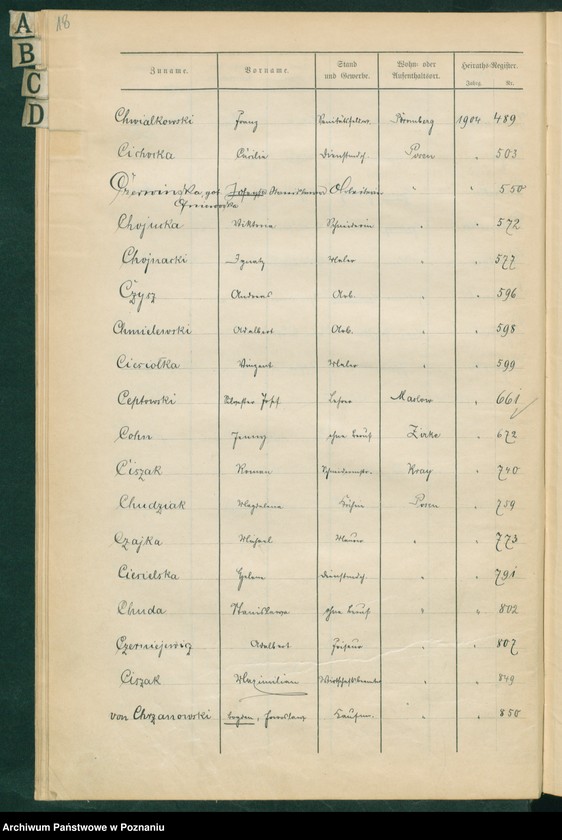 A
B
C
D
18
Zuname. Vorname. Stand und Gewerbe. Wohn- oder Aufenthaltsort. Heiraths-Register.
Jahrg. Nr.
Chwialkowski Franz Bromberg 1904 489
Cichocka Cäcilie Dienstmdch. Posen " 503
" " 550
Chojucka Viktoria Schneiderin " " 572
Chojnacki Ignatz Maler " " 577
Czysz Andreas Arb. " " 596
Chmielewski Adalbert Arb. " " 598
Cieciołka Vinzent Maler " " 599
Ceptowski Lehrer " 661
Cohn Jenny ohne Beruf Zirke " 672
Ciszak Roman Schneidermstr. Wray " 740
Chudziak Magdalena Posen " 759
Czajka Michael Maurer " " 773
Cieielska Helene Dienstmdch. " " 791
Chuda Stanislawa ohne Beruf " " 802
Czerniejewicz Adalbert Friseur " " 807
Ciszak Maximilian Wirthschaftsbeamter " " 849
von Chrzanowski Kaufm. " " 850
Archiwum Państwowe w Poznaniu